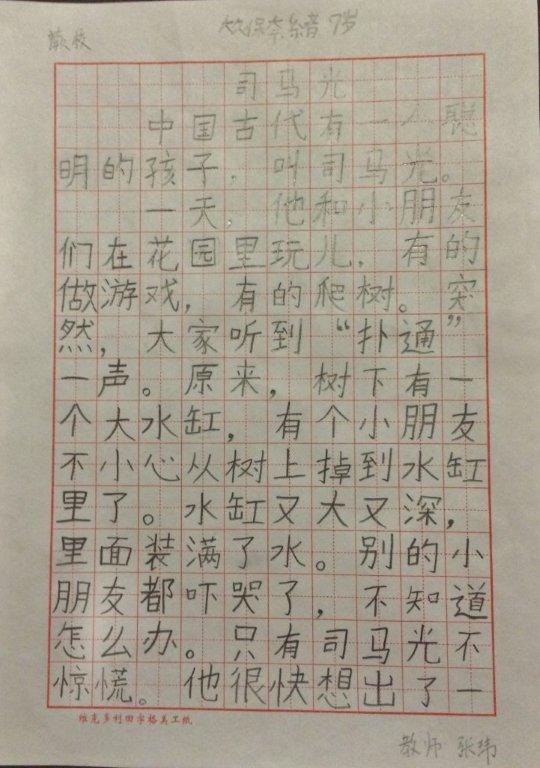 大久保奈緒 7岁
司马光
中国古代有一个聪
明的孩子，叫司马光。
一天，他和小朋友
们在花园里玩儿，有的
做游戏，有的爬树。突
然，大家听到“扑通”
一声。原来，树下有一
个大水缸，有个小朋友
不小心从树上掉到水缸
里了。水缸又大又深，
里面装满了水。别的小
朋友都吓哭了，不知道
怎么办。只有司马光不
惊慌。他很快想出了一
维克多利田字格美工纸
教师 张玮